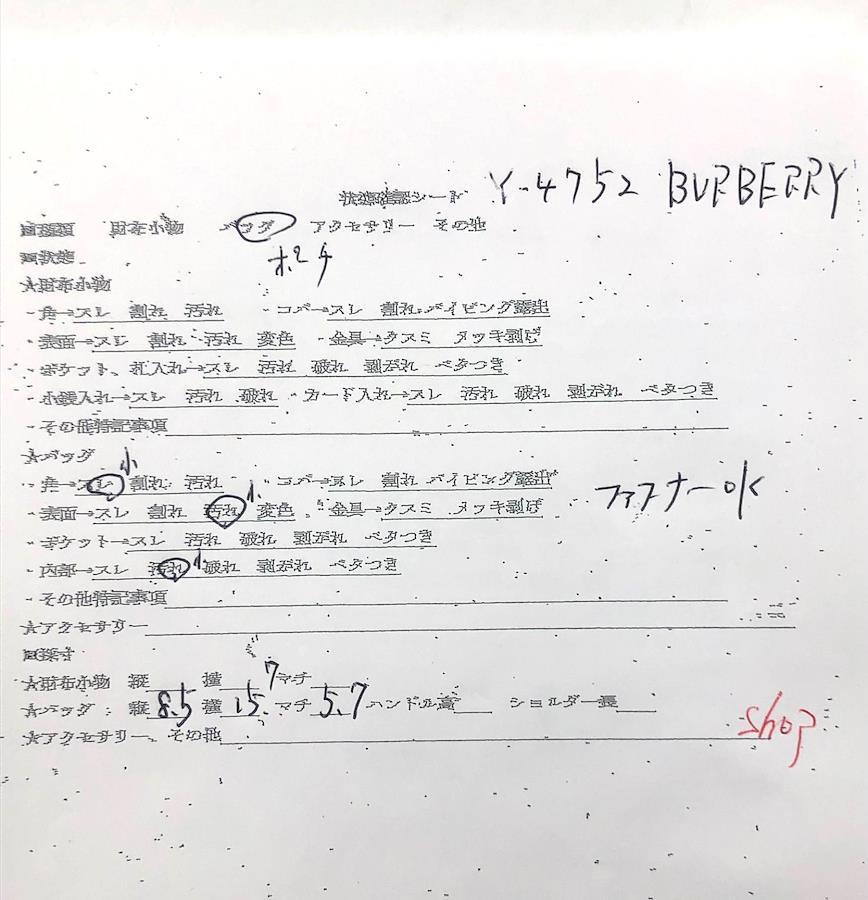 状態確認シート Y-4752 BURBERRY
■種類 財布小物 バッグ アクセサリー その他
ポーチ
■状態
★財布小物
・角→スレ 割れ 汚れ ・コバ→スレ 割れ パイピング露出
・表面→スレ 割れ 汚れ 変色 ・金具→クスミ メッキ剥げ
・ポケット、札入れ→スレ 汚れ 破れ 剥がれ ベタつき
・小銭入れ→スレ 汚れ 破れ ・カード入れ→スレ 汚れ 破れ 剥がれ ベタつき
・その他特記事項
★バッグ 小
・角→スレ 割れ 汚れ ・コバ→スレ 割れ パイピング露出
・表面→スレ 割れ 汚れ 小 変色 ・金具→クスミ メッキ剥げ ファスナーok
・ポケット→スレ 汚れ 破れ 剥がれ ベタつき
・内部→スレ 汚れ 破れ 剥がれ ベタつき
・その他特記事項
★アクセサリー
■採寸
★財布小物 縦 横 マチ
★バッグ 縦 8.5 横 15.7 マチ 5.7 ハンドル高 ショルダー長
★アクセサリー、その他
shop